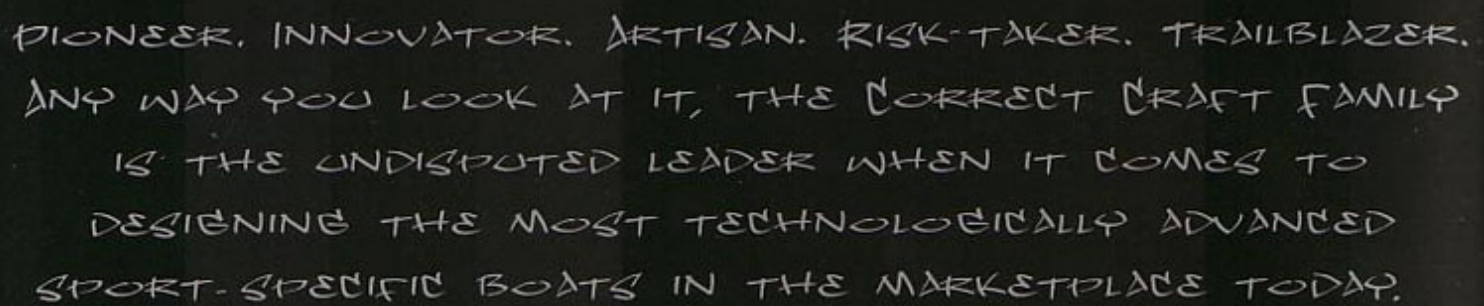 PIONEER. INNOVATOR. ARTISAN. RISK-TAKER. TRAILBLAZER.
ANY WAY YOU LOOK AT IT, THE CORRECT CRAFT FAMILY
IS THE UNDISPUTED LEADER WHEN IT COMES TO
DESIGNING THE MOST TECHNOLOGICALLY ADVANCED
SPORT-SPECIFIC BOATS IN THE MARKETPLACE TODAY.